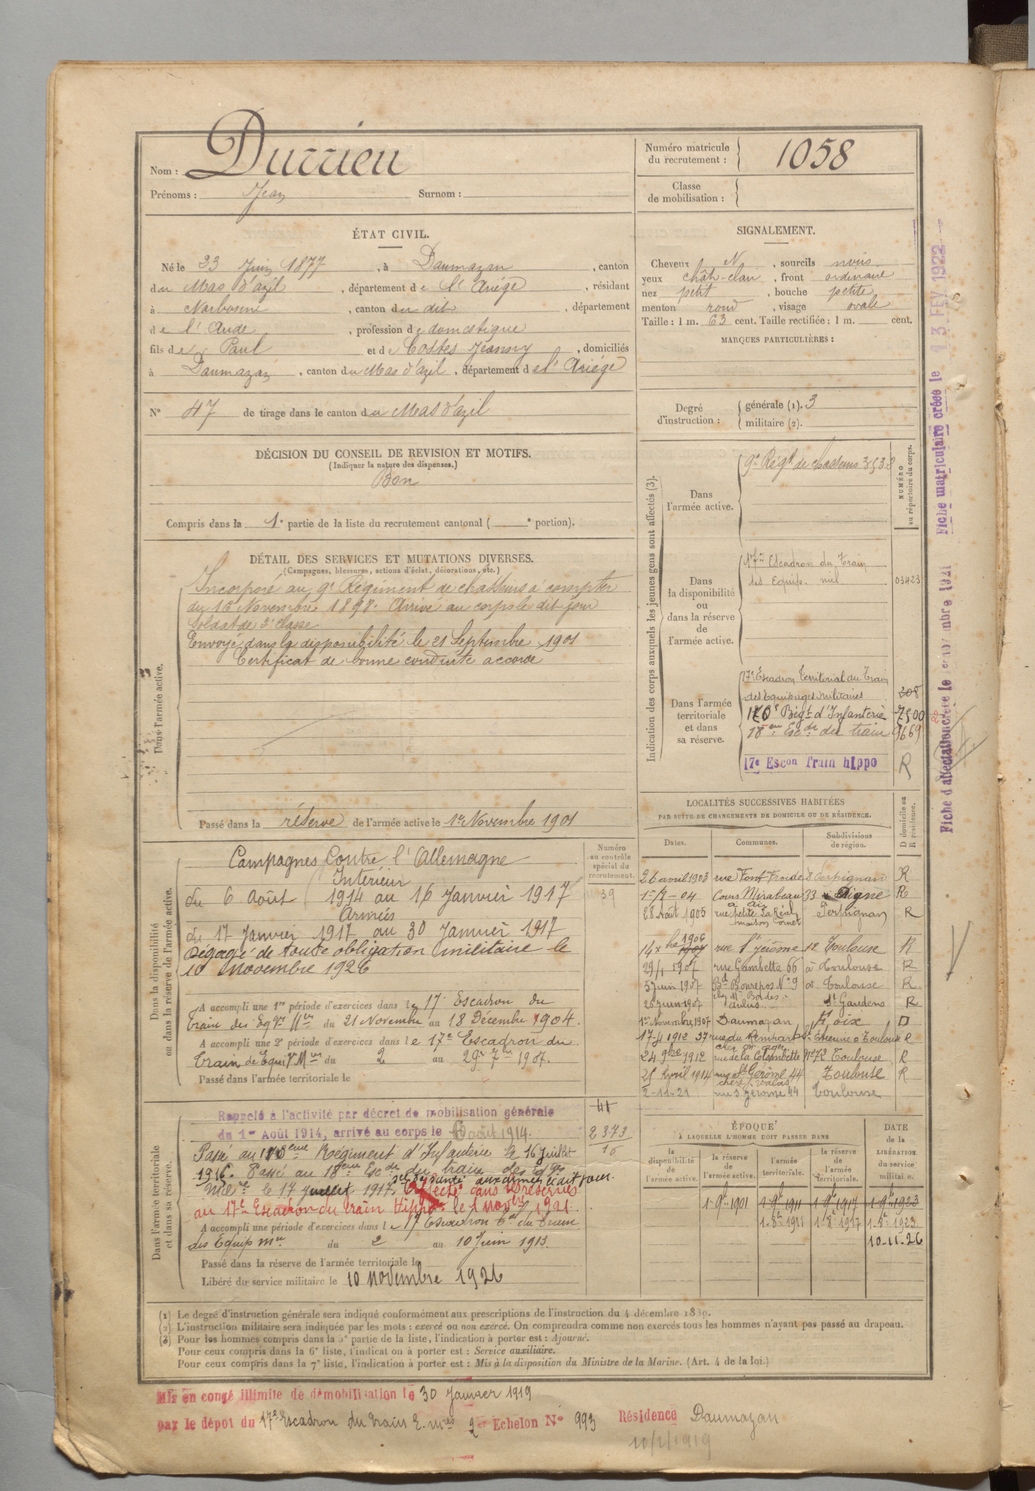 Nom : Durrieu
Prénoms : Jean Surnom :
Numéro matricule du recrutement : 1058
Classe de mobilisation :
ÉTAT CIVIL.
Né le 23 Juin 1877, à Daumazan, canton
du Mas d'azil, département de l'Ariège, résidant
à Narbonne, canton du dit, département
de l'Aude, profession de domestique
fils de Paul et de Costes Jeanny, domiciliés
à Daumazan, canton du Mas d'azil, département de l'Ariège
N° 47 de tirage dans le canton du Mas d'azil
SIGNALEMENT.
Cheveux N, sourcils noirs
yeux chât-clair, front ordinaire
nez petit, bouche petite
menton rond, visage ovale
Taille : 1 m. 63 cent. Taille rectifiée : 1 m. cent.
MARQUES PARTICULIÈRES :
Degré d'instruction : générale (1). 3
militaire (2).
DÉCISION DU CONSEIL DE REVISION ET MOTIFS.
(Indiquer la nature des dispenses.)
Bon
Compris dans la 1e partie de la liste du recrutement cantonal ( e portion).
DÉTAIL DES SERVICES ET MUTATIONS DIVERSES.
(Campagnes, blessures, actions d'éclat, décorations, etc.)
Dans l'armée active.
Incorporé au 9e Régiment de chasseurs à compter
du 16 Novembre 1898. Arrivé au corps le dit jour
Soldat de 2e classe
Envoyé dans la disponibilité le 21 Septembre 1901
Certificat de bonne conduite accordé
Passé dans la réserve de l'armée active le 1er Novembre 1901
Indication des corps auxquels les jeunes gens sont affectés (3).
NUMÉRO au répertoire du corps.
Dans l'armée active.
9e Régt de chasseurs 3538
Dans la disponibilité ou dans la réserve de l'armée active.
17me Escadron du Train
des Equip. mil. 03423
Dans l'armée territoriale et dans sa réserve.
17e Escadron territorial du Train
des Equipages militaires 308
110e Régt d'Infanterie 7500
18me Esc de du train 9669
17e Escon Train hippo R
Dans la disponibilité ou dans la réserve de l'armée active.
Numéro au contrôle spécial du recrutement.
Campagnes Contre l'Allemagne
Intérieur
du 6 Août 1914 au 16 Janvier 1917
Armées
du 17 Janvier 1917 au 30 Janvier 1917
Dégagé de toute obligation militaire le
10 Novembre 1926
A accompli une 1re période d'exercices dans le 17e Escadron du
Train des Eq. Mres du 21 Novembre au 18 Décembre 1904.
A accompli une 2e période d'exercices dans le 17e Escadron du
Train de Equi Mres du 2 au 29 7bre 1907.
Passé dans l'armée territoriale le
LOCALITÉS SUCCESSIVES HABITÉES
PAR SUITE DE CHANGEMENTS DE DOMICILE OU DE RÉSIDENCE.
Dates. Communes. Subdivisions de région. D domicile ou R résidence.
26 avril 1903 rue Font Froide 8 Perpignan R
1-7-04 Cours Mirabeau 33 à Aix Digne R
28 Août 1905 rue petite La Réal maison Cornet Perpignan R
14 Xbre 1906 rue St Jérôme 12 Toulouse R
29/4 1907 rue Gambetta 66 à Toulouse R
5 juin 1907 Bd Bonrepos N° 9 à Toulouse R
26 juin 1907 chez Mr Bordes Aulus St Gaudens R
1er Novembre 1907 Daumazan Foix D
17-4 1912 37 rue du Rempart St Etienne à Toulouse R
24 9bre 1912 rue de la Colombette Toulouse R
25 Avril 1914 rue St Gérôme 44 Toulouse R
2-11-21 rue St Jérome 44 Toulouse
Dans l'armée territoriale et dans sa réserve.
Rappelé à l'activité par décret de mobilisation générale
du 1er Août 1914, arrivé au corps le 6 août 1914.
2373
Passé au 110eme Régiment d'Infanterie le 16 juillet
1916. Passé au 18eme Esc de du train des Eq.
Mres le 17 juillet 1917. Affecté dans les réserves
au 17e Escadron du Train Hippo le 1 Nov 1921
A accompli une période d'exercices dans le 17 Escadron Tal du Train
des Equip Mres du 2 au 10 Juin 1913.
Passé dans la réserve de l'armée territoriale le
Libéré du service militaire le 10 novembre 1926
ÉPOQUE
À LAQUELLE L'HOMME DOIT PASSER DANS
la disponibilité de l'armée active. la réserve de l'armée active. l'armée territoriale. la réserve de l'armée territoriale. DATE de la LIBÉRATION du service militaire.
1-9bre-1901 1-9bre-1911 1-9bre-1917 1-9bre-1923
1-8e-1911 1-8e-1917 1-8e-1923
10-11-26
(1) Le degré d'instruction générale sera indiqué conformément aux prescriptions de l'instruction du 4 décembre 1889.
(2) L'instruction militaire sera indiquée par les mots : exercé ou non exercé. On comprendra comme non exercés tous les hommes n'ayant pas passé au drapeau.
(3) Pour les hommes compris dans la 5e partie de la liste, l'indication à porter est : Ajourné.
Pour ceux compris dans la 6e liste, l'indication à porter est : Service auxiliaire.
Pour ceux compris dans la 7e liste, l'indication à porter est : Mis à la disposition du Ministre de la Marine. (Art. 4 de la loi.)
Mis en congé illimité de démobilisation le 30 Janvier 1919
par le dépôt du 17e Escadron du train E. mres 2e Echelon N° 993 Résidence Daumazan
10/2/1919
Fiche matriculaire créée le 13 FEV 1922